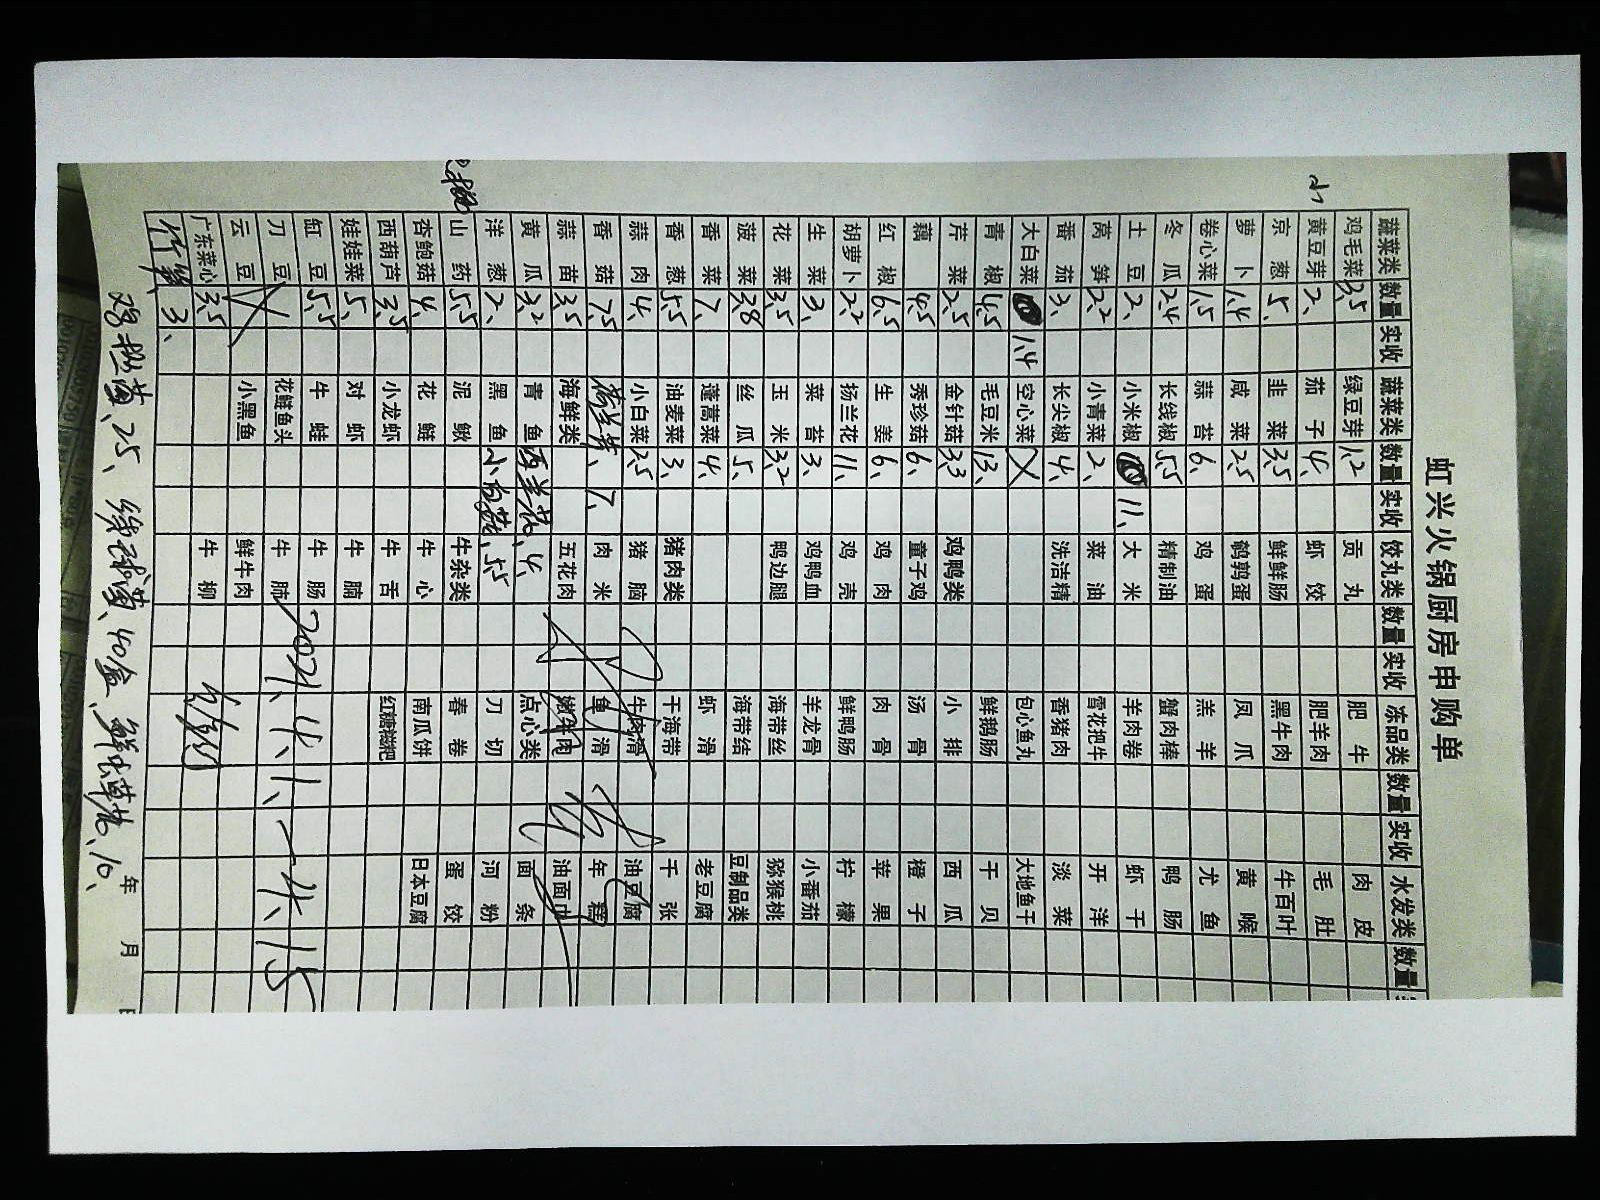 虹兴火锅厨房申购单
蔬菜类 数量 实收 蔬菜类 数量 实收 饺丸类 数量 实收 冻品类 数量 实收 水发类 数量
鸡毛菜 3.5 绿豆芽 1.2 贡丸 肥牛 肉皮
黄豆芽 2、 茄子 4、 虾饺 肥羊肉 毛肚
京葱 5、 韭菜 3.5 鲜鲜肠 黑牛肉 牛百叶
萝卜 1.4 咸菜 2.5 鹌鹑蛋 凤爪 黄喉
卷心菜 1.5 蒜苔 6、 鸡蛋 羔羊 尤鱼
冬瓜 2.4 长线椒 5.5 精制油 蟹肉棒 鸭肠
土豆 2、 小米椒 11、 大米 羊肉卷 虾干
莴笋 2.2 小青菜 2、 菜油 雪花把牛 开洋
番茄 3、 长尖椒 4、 洗洁精 香猪肉 淡菜
大白菜 1.4 空心菜 包心鱼丸 大地鱼干
青椒 4.5 毛豆米 13、 鲜鹅肠 干贝
芹菜 2.5 金针菇 3.3 鸡鸭类 小排 西瓜
藕 4.5 秀珍菇 6、 童子鸡 汤骨 橙子
红椒 6.5 生姜 6、 鸡肉 肉骨 苹果
胡萝卜 2.2 扬兰花 11、 鸡壳 鲜鸭肠 柠檬
生菜 3、 菜苔 3、 鸡鸭血 羊龙骨 小番茄
花菜 3.5 玉米 3.2 鸭边腿 海带丝 猕猴桃
菠菜 3.8 丝瓜 5、 海带结 豆制品类
香菜 7、 蓬蒿菜 4、 虾滑 老豆腐
香葱 5.5 油麦菜 3、 猪肉类 干海带 千张
蒜肉 4、 小白菜 3.5 猪脑 牛肉滑 油豆腐
香菇 7.5 7、 肉米 鱼滑 年糕
蒜苗 3.5 海鲜类 五花肉 嫩牛肉 油面巾
黄瓜 3.2 青鱼 西兰花、4、 点心类 面条
洋葱 2、 黑鱼 小白菇、5.5 刀切 河粉
山药 5.5 泥鳅 牛杂类 春卷 蛋饺
杏鲍菇 4、 花鲢 牛心 南瓜饼 日本豆腐
西葫芦 3.5 小龙虾 牛舌 红糖糍粑
娃娃菜 5、 对虾 牛腩
缸豆 5.5 牛蛙 牛肠
刀豆 花鲢鱼头 牛腩 2021、4、1、-4、15
云豆 小黑鱼 鲜牛肉
广东菜心 3.5 牛柳
3、
年 月
25、 40盒、 10、